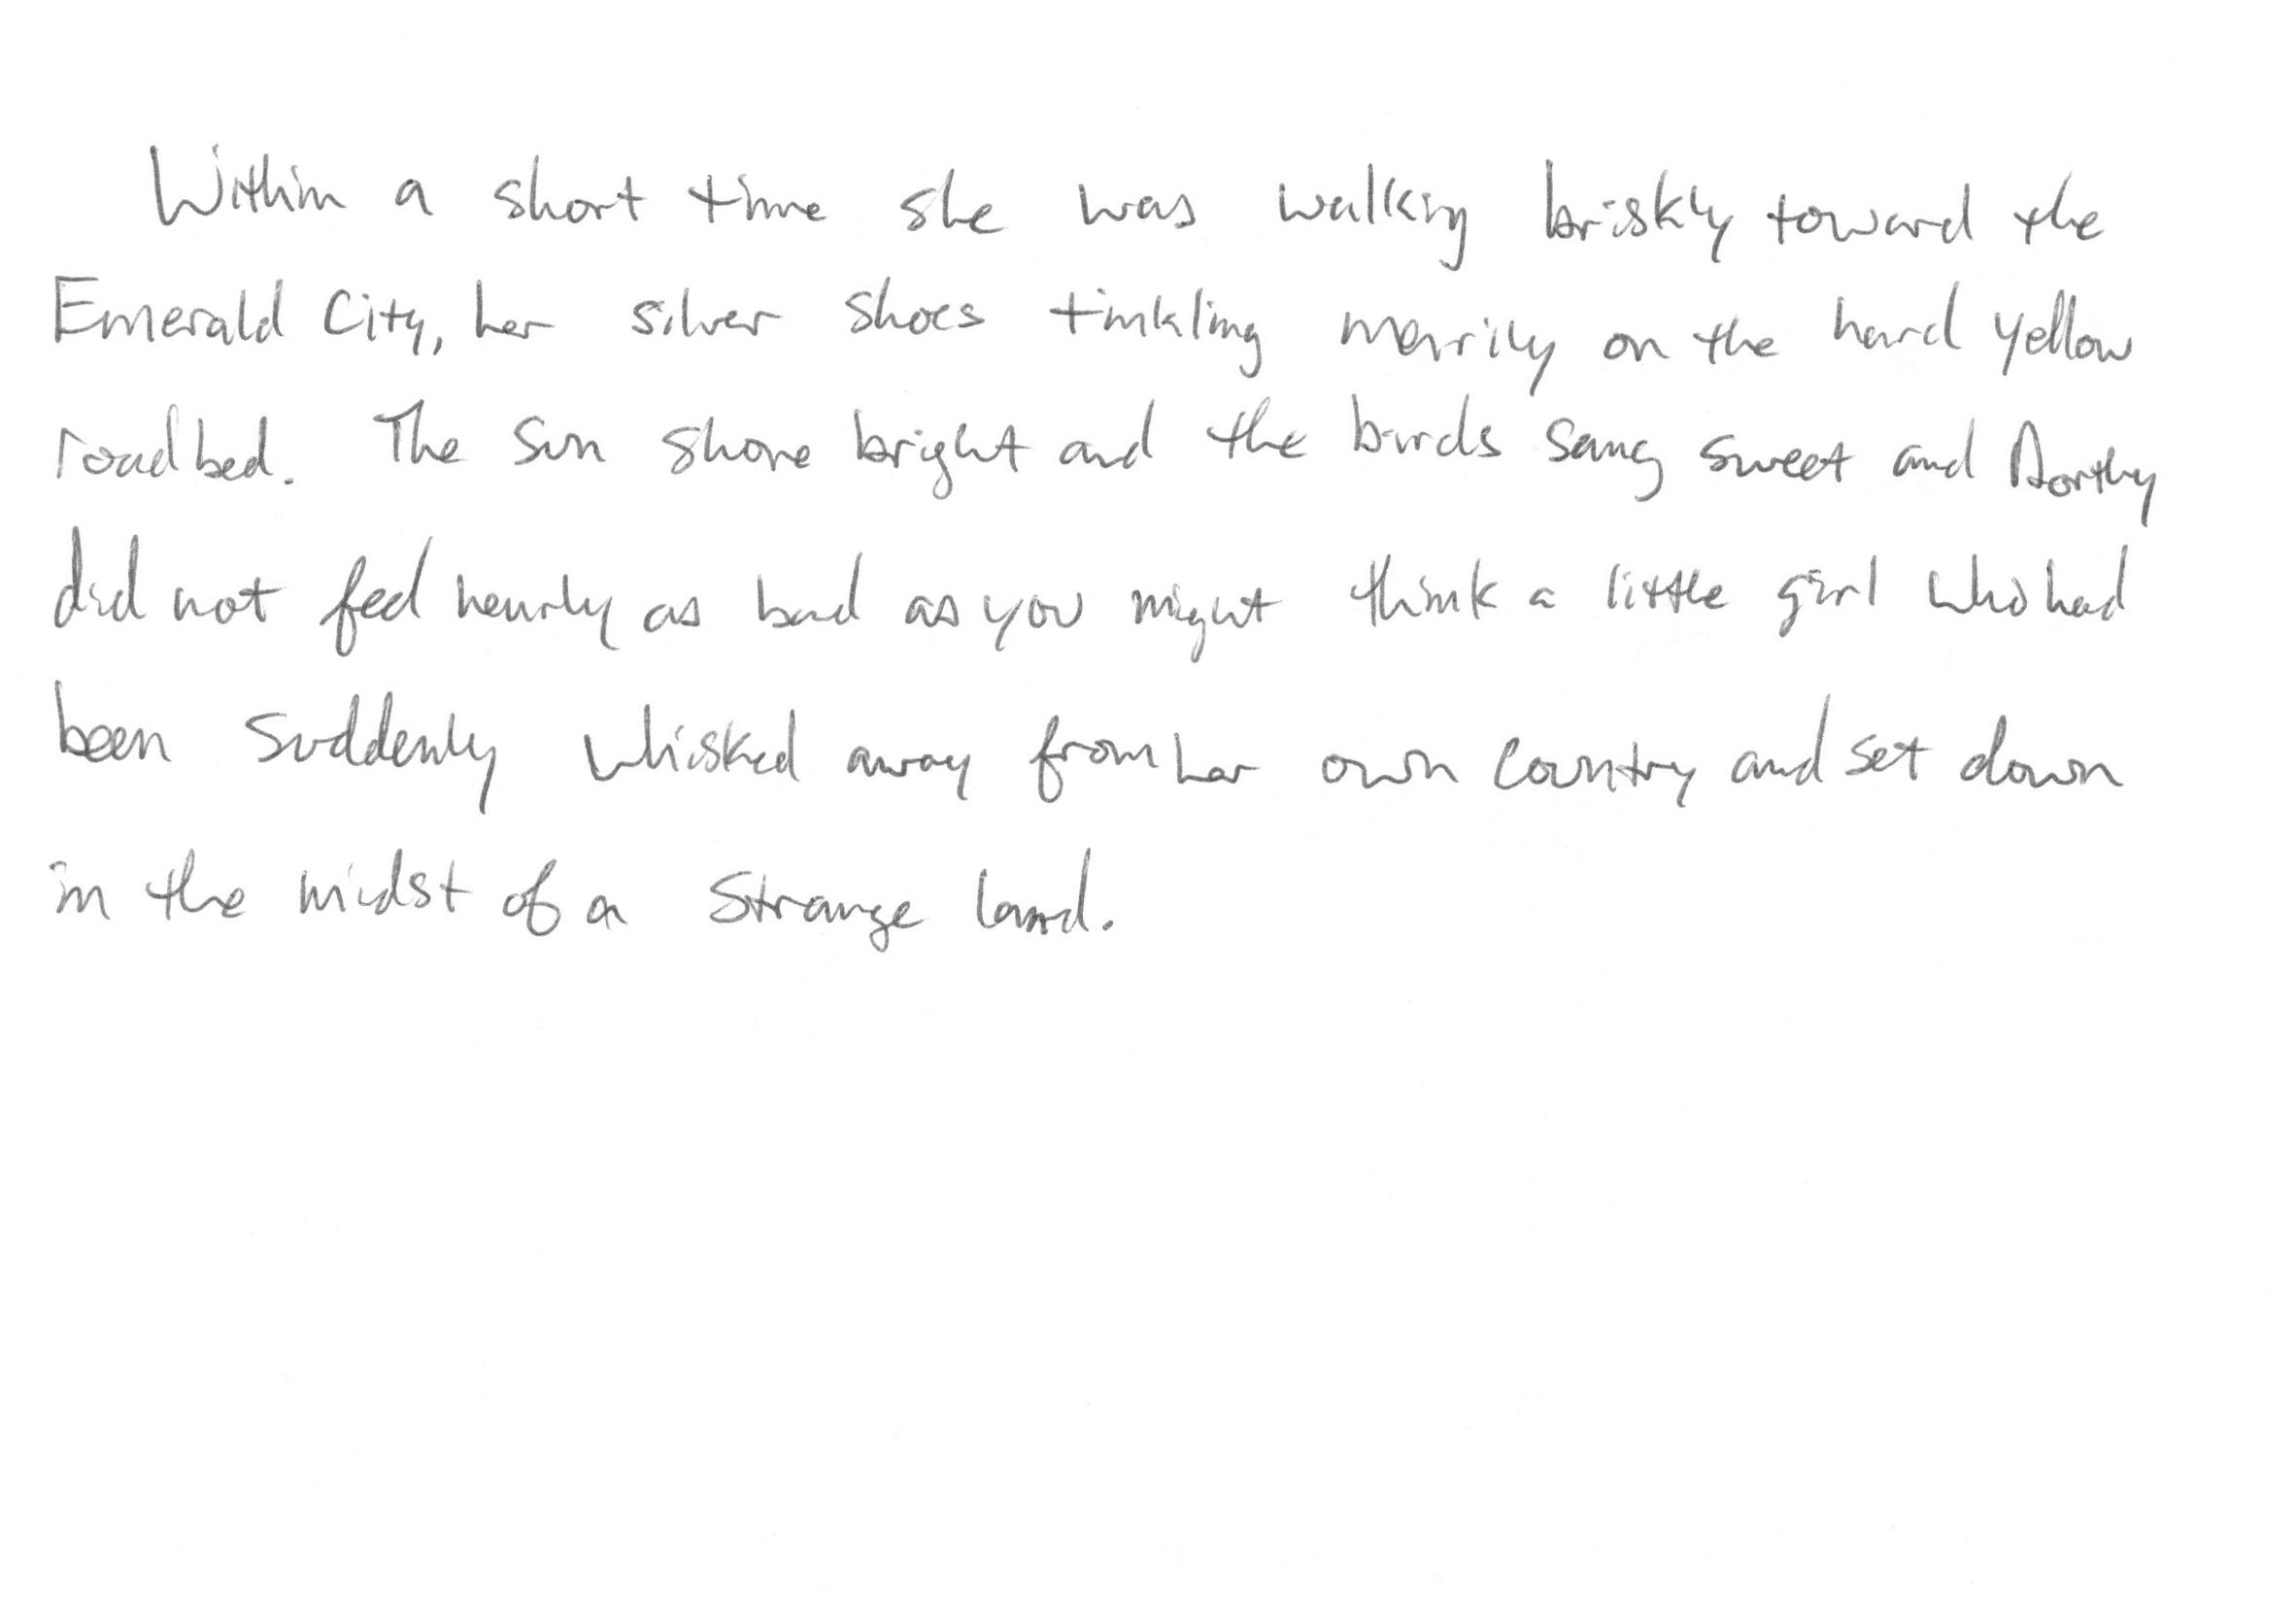 Within a short time she was walking briskly toward the
Emerald City, her silver shoes tinkling merrily on the hard yellow
roadbed. The sun shone bright and the birds sang sweet and Dorthy
did not feel nearly as bad as you might think a little girl who had
been suddenly whisked away from her own country and set down
in the midst of a strange land.